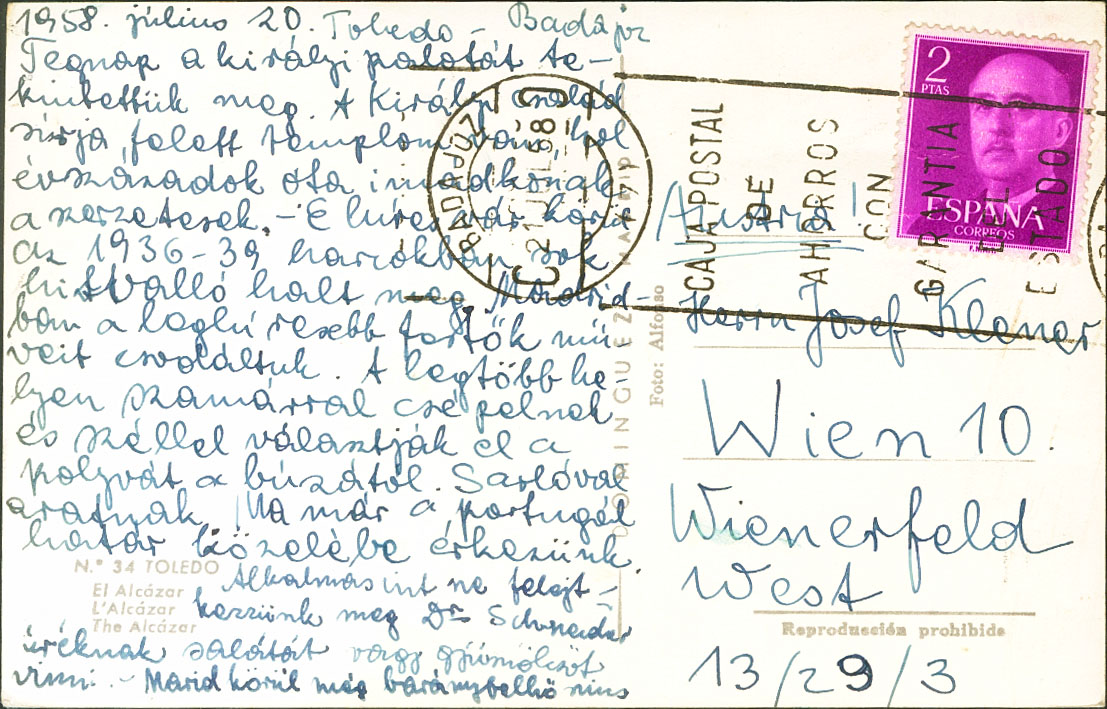 1958. július 20. Toledo - Badajoz
Tegnap a királyi palotát te-
kintettük meg. A Király család
sírja felett templom van, hol
évszázadok óta imádkoznak
a szerzetesek. - E híres vár körül
az 1936-39 harcokban sok
hitvalló halt meg. Madrid-
ban a leghíresebb festők mű-
veit csodáltuk. A legtöbb he-
lyen szamárral csépelnek
és széllel választják el a
polyvát a búzától. Sarlóval
aratnak. Ma már a portugál
határ közelébe érkezünk.
Alkalmasint ne felejt-
kezzünk meg Dr Schneider
úréknak salátát vagy gyümölcsöt
vinni. - Marid körül még bárányfelhő sincs
N.º 34 TOLEDO
El Alcázar
L'Alcázar
The Alcázar
DOMINGUEZ
Foto: Alfonso
BADAJOZ
21 JUL 58
CAJA POSTAL
DE
AHORROS
CON
GARANTIA
DEL
ESTADO
2
PTAS
ESPAÑA
CORREOS
Austria!
Herrn Josef Klener
Wien 10.
Wienerfeld
West
Reproducción prohibide
13/29/3